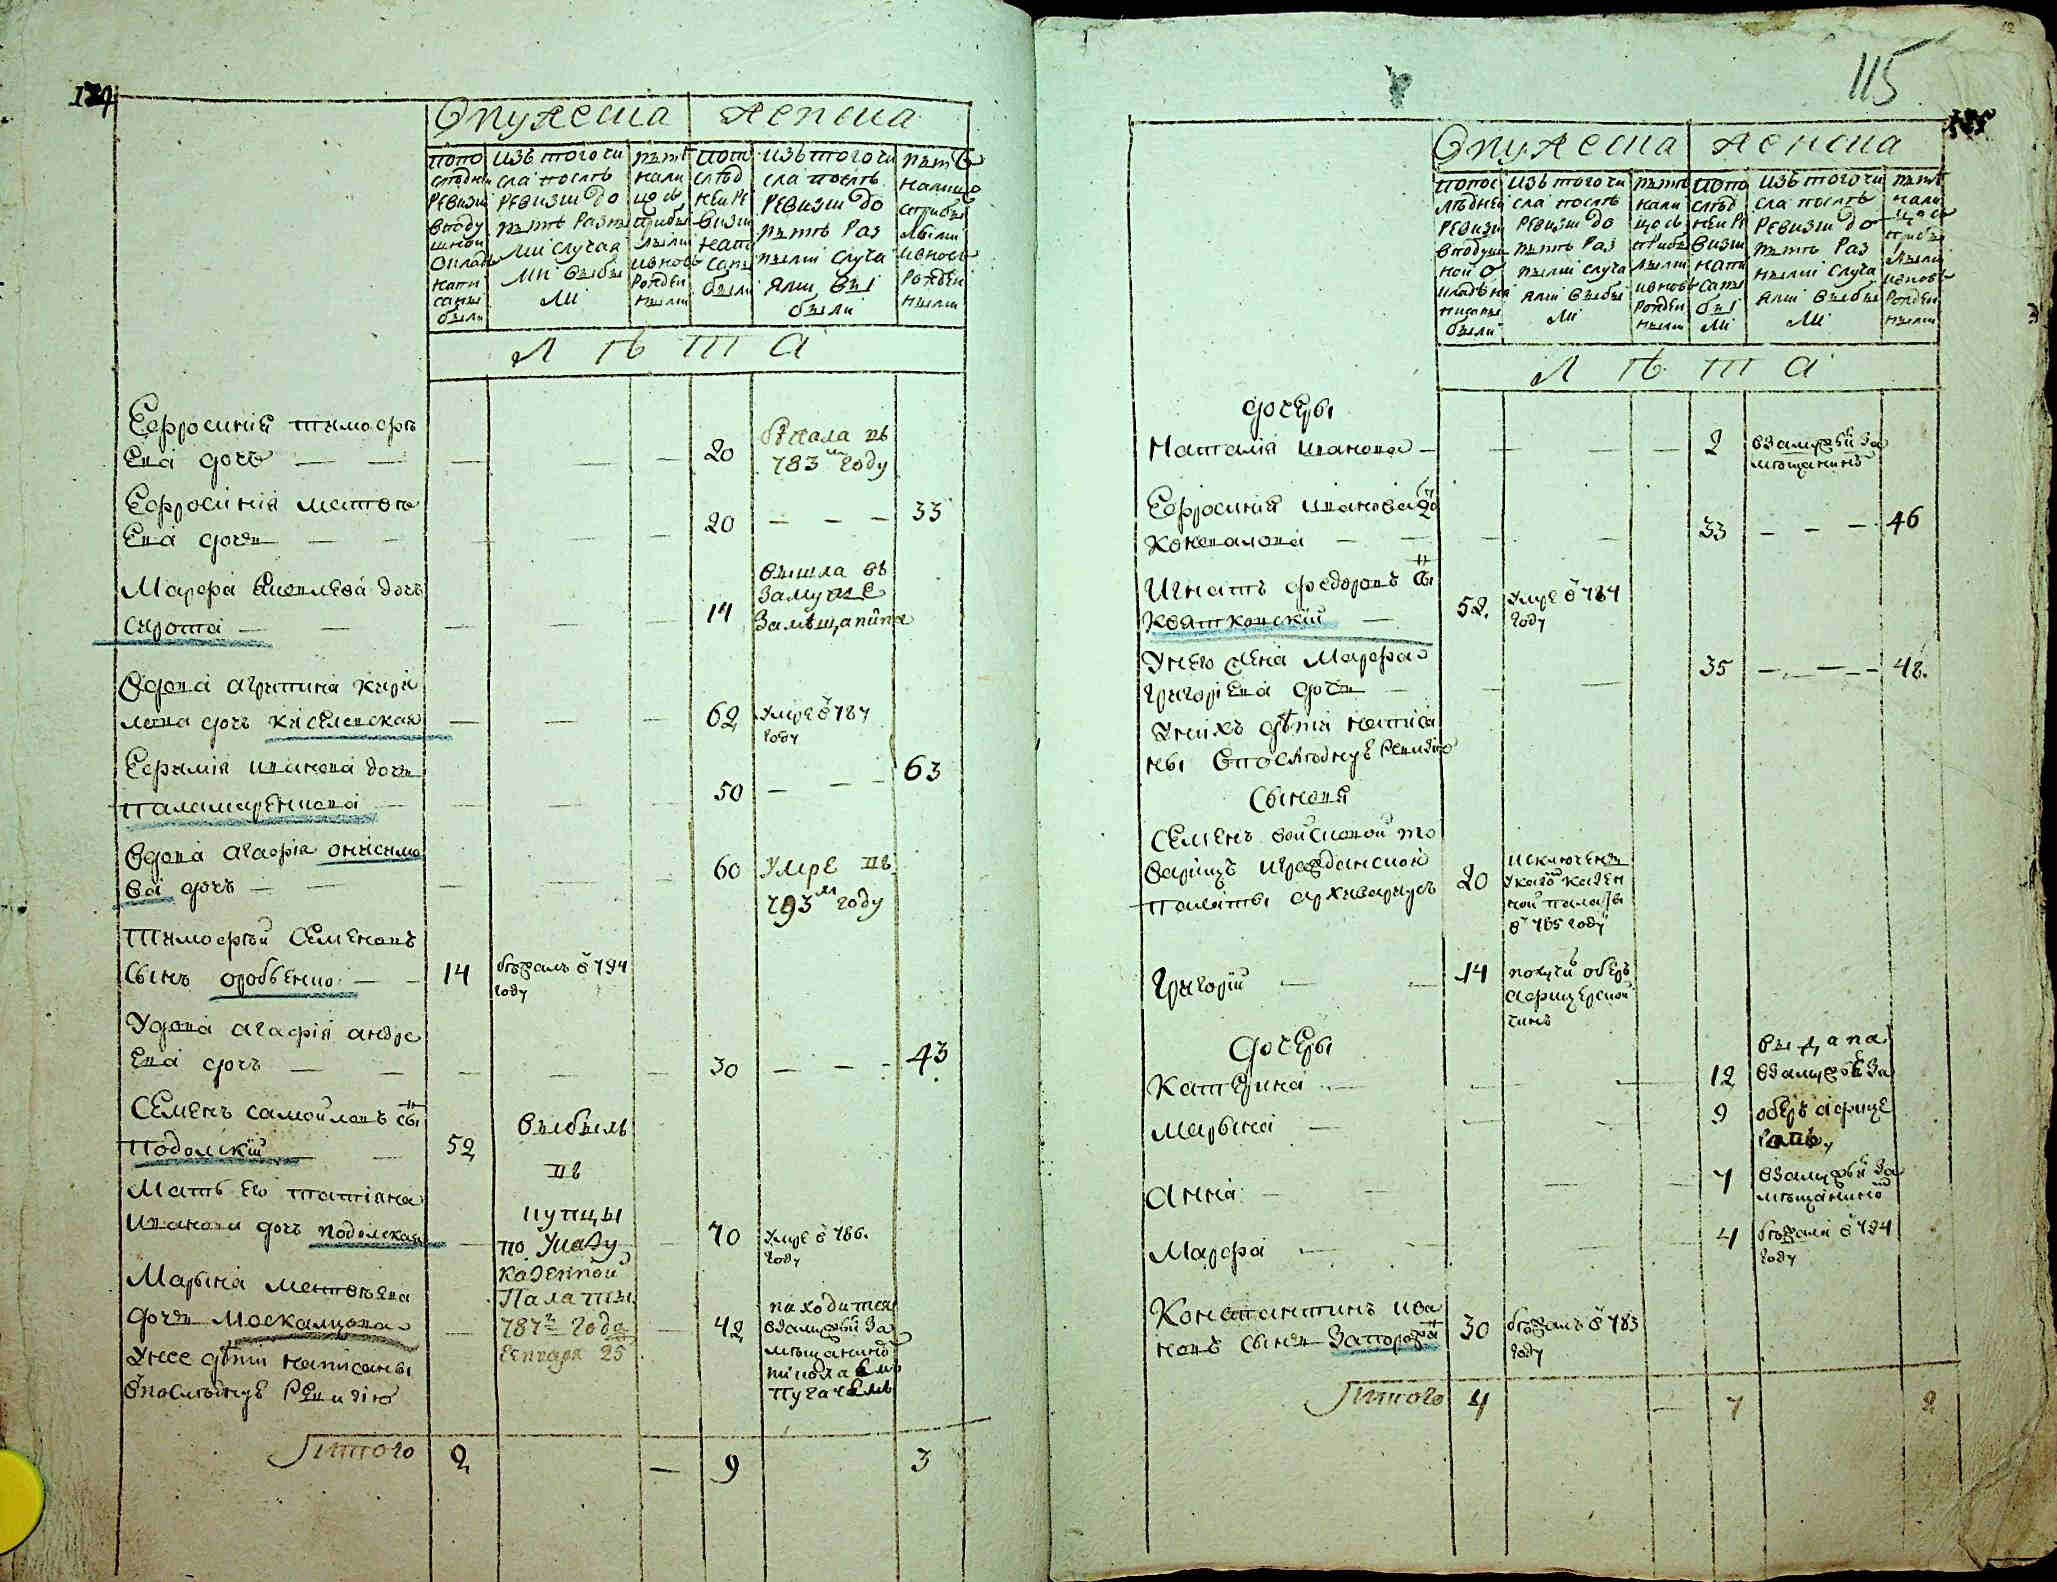 Мужеска женска
попо
следней
ревизи
в поду
шной
оклад
напи
саны
были
изъ того чи
сла после
ревизии до
ныне разны
ми случая
ми выбы
ли
ныне
нали
цо съ
прибы
лыми
и новь
рожден
ными
попо
след
ней ре
визии
напи
саны
были
изъ того чи
сла после
ревизии до
ныне раз
ными случа
ями вы
были
ныне
налицо
с прибы
лыми
и новь
рожден
ными
Л Ѣ Т А
Ефросиния тимофѣ
ева дочь — — — — — 20 бежала въ
783м году
Ефросиния матвѣ
ева дочь — — — — — 20 — — — 33
Марфа яковлева дочь
сирота — — — — — 14 вышла въ
замуже
за мещанина
Вдова агрипина кири
лова дочь киселевская — — — 62 умре в 787
году
Ефимия иванова дочь
паламаренкова — — — — 50 — — — 63
Вдова агафия онисимо
ва дочь — — — — — 60 умре въ
793м году
Тимофѣй Семеновъ
сынъ оробьенко — — 14 бежалъ в 794
году
Удова агафия андре
ева дочь — — — — — 30 — — — 43
Семенъ самойловъ сынъ
подолский — — 52 выбылъ
въ
купцы
по указу
казенной
Палаты
787го года
Генваря 25
Мать его татияна
иванова дочь подолская — — 70 умре в 786
году
Марина матвѣева
дочь москалцова — — 42 находится
взамужей за
мещаниномъ
николаемъ
пугачемъ
у нее дѣти написаны
в последную ревизию
Итого 2 — 9 3
115
Мужеска женска
попос
ледней
ревизи
в подуш
ной о
клад на
писаны
были
изъ того чи
сла после
ревизии до
ныне раз
ными случа
ями выбы
ли
ныне
нали
цо съ
прибы
лыми
и новь
рожден
ными
попо
след
ней ре
визии
напи
саны
бы
ли
изъ того чи
сла после
ревизии до
ныне раз
ными случа
ями выбы
ли
ныне
нали
цо съ
прибы
лыми
и новь
рожден
ными
Л Ѣ Т А
дочери
Наталия иванова — — — — 2 взамужей за
мещаниномъ
Ефросиния иванова дочь
Коновалова — — — — 33 — — — 46
Игнатъ федоровъ сынъ
Квятковский — 52 умре в 784
году
У него жена Марфа
григориева дочь — — — 35 — — — 48
У нихъ дѣти написа
ны в последную ревизию
сыновя
Семенъ войсковой то
варищъ гражданской
палаты архивариусъ 20 исключенъ
указомъ казен
ной палаты
в 785 году
Григорий — — 14 получилъ оберъ
афицерской
чинъ
Дочери
Катерина — — — 12 выдана
взамужей за
Марина — — — 9 оберъ афице
ромъ
Анна — — — — 7 взамужей за
мещаниномъ
Марфа — — — — 4 бежала в 794
году
Константинъ ива
новъ сынъ Запорожан 30 бежалъ в 783
году
Итого 4 — 7 2